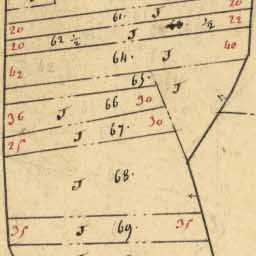 61. J 20
20 ½ 22
20 62 ½ J
64. J 40
42
65. J
66 30
36 J
67. 30
25 J
68.
J
35 J 69. 35